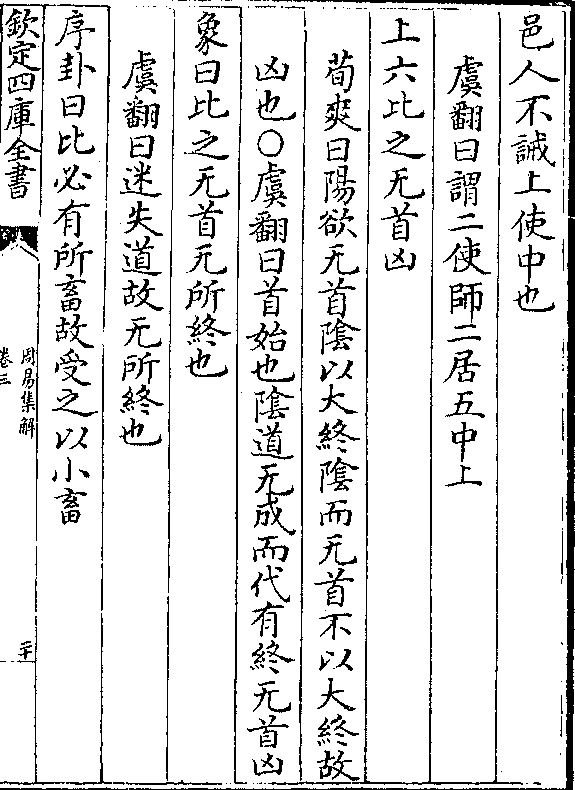 邑人不誡上使中也
虞翻曰謂二使師二居五中上
上六比之无首凶
荀爽曰陽欲无首陰以大終陰而无首不以大終故
凶也○虞翻曰首始也陰道无成而代有終无首凶
象曰比之无首无所終也
虞翻曰迷失道故无所終也
序卦曰比必有所畜故受之以小畜
欽定四庫全書
周易集解
卷三
二十